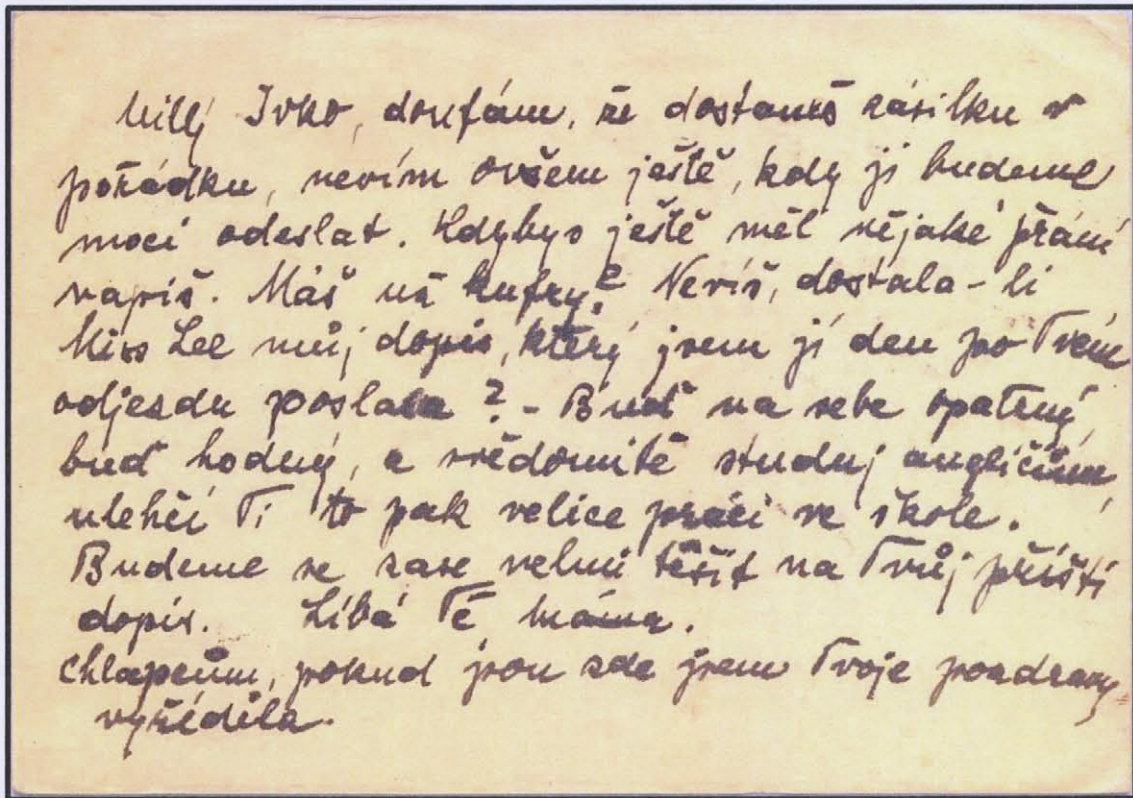 Milý Ivko, doufám, že dostaneš zásilku v
pořádku, nevím ovšem ještě, kdy ji budeme
moci odeslat. Kdybys ještě měl nějaké přání
napiš. Máš už kufry? Nevíš, dostala-li
Miss Lee můj dopis, který jsem jí den po Tvém
odjezdu poslala? - Buď na sebe opatrný,
buď hodný, a svědomitě studuj angličtinu,
ulehčí Ti to pak velice práci ve škole.
Budeme se zase velmi těšit na Tvůj příští
dopis. Líbá Tě, máma.
Chlapcům, pokud jsou zde jsem Tvoje pozdravy
vyřídila.